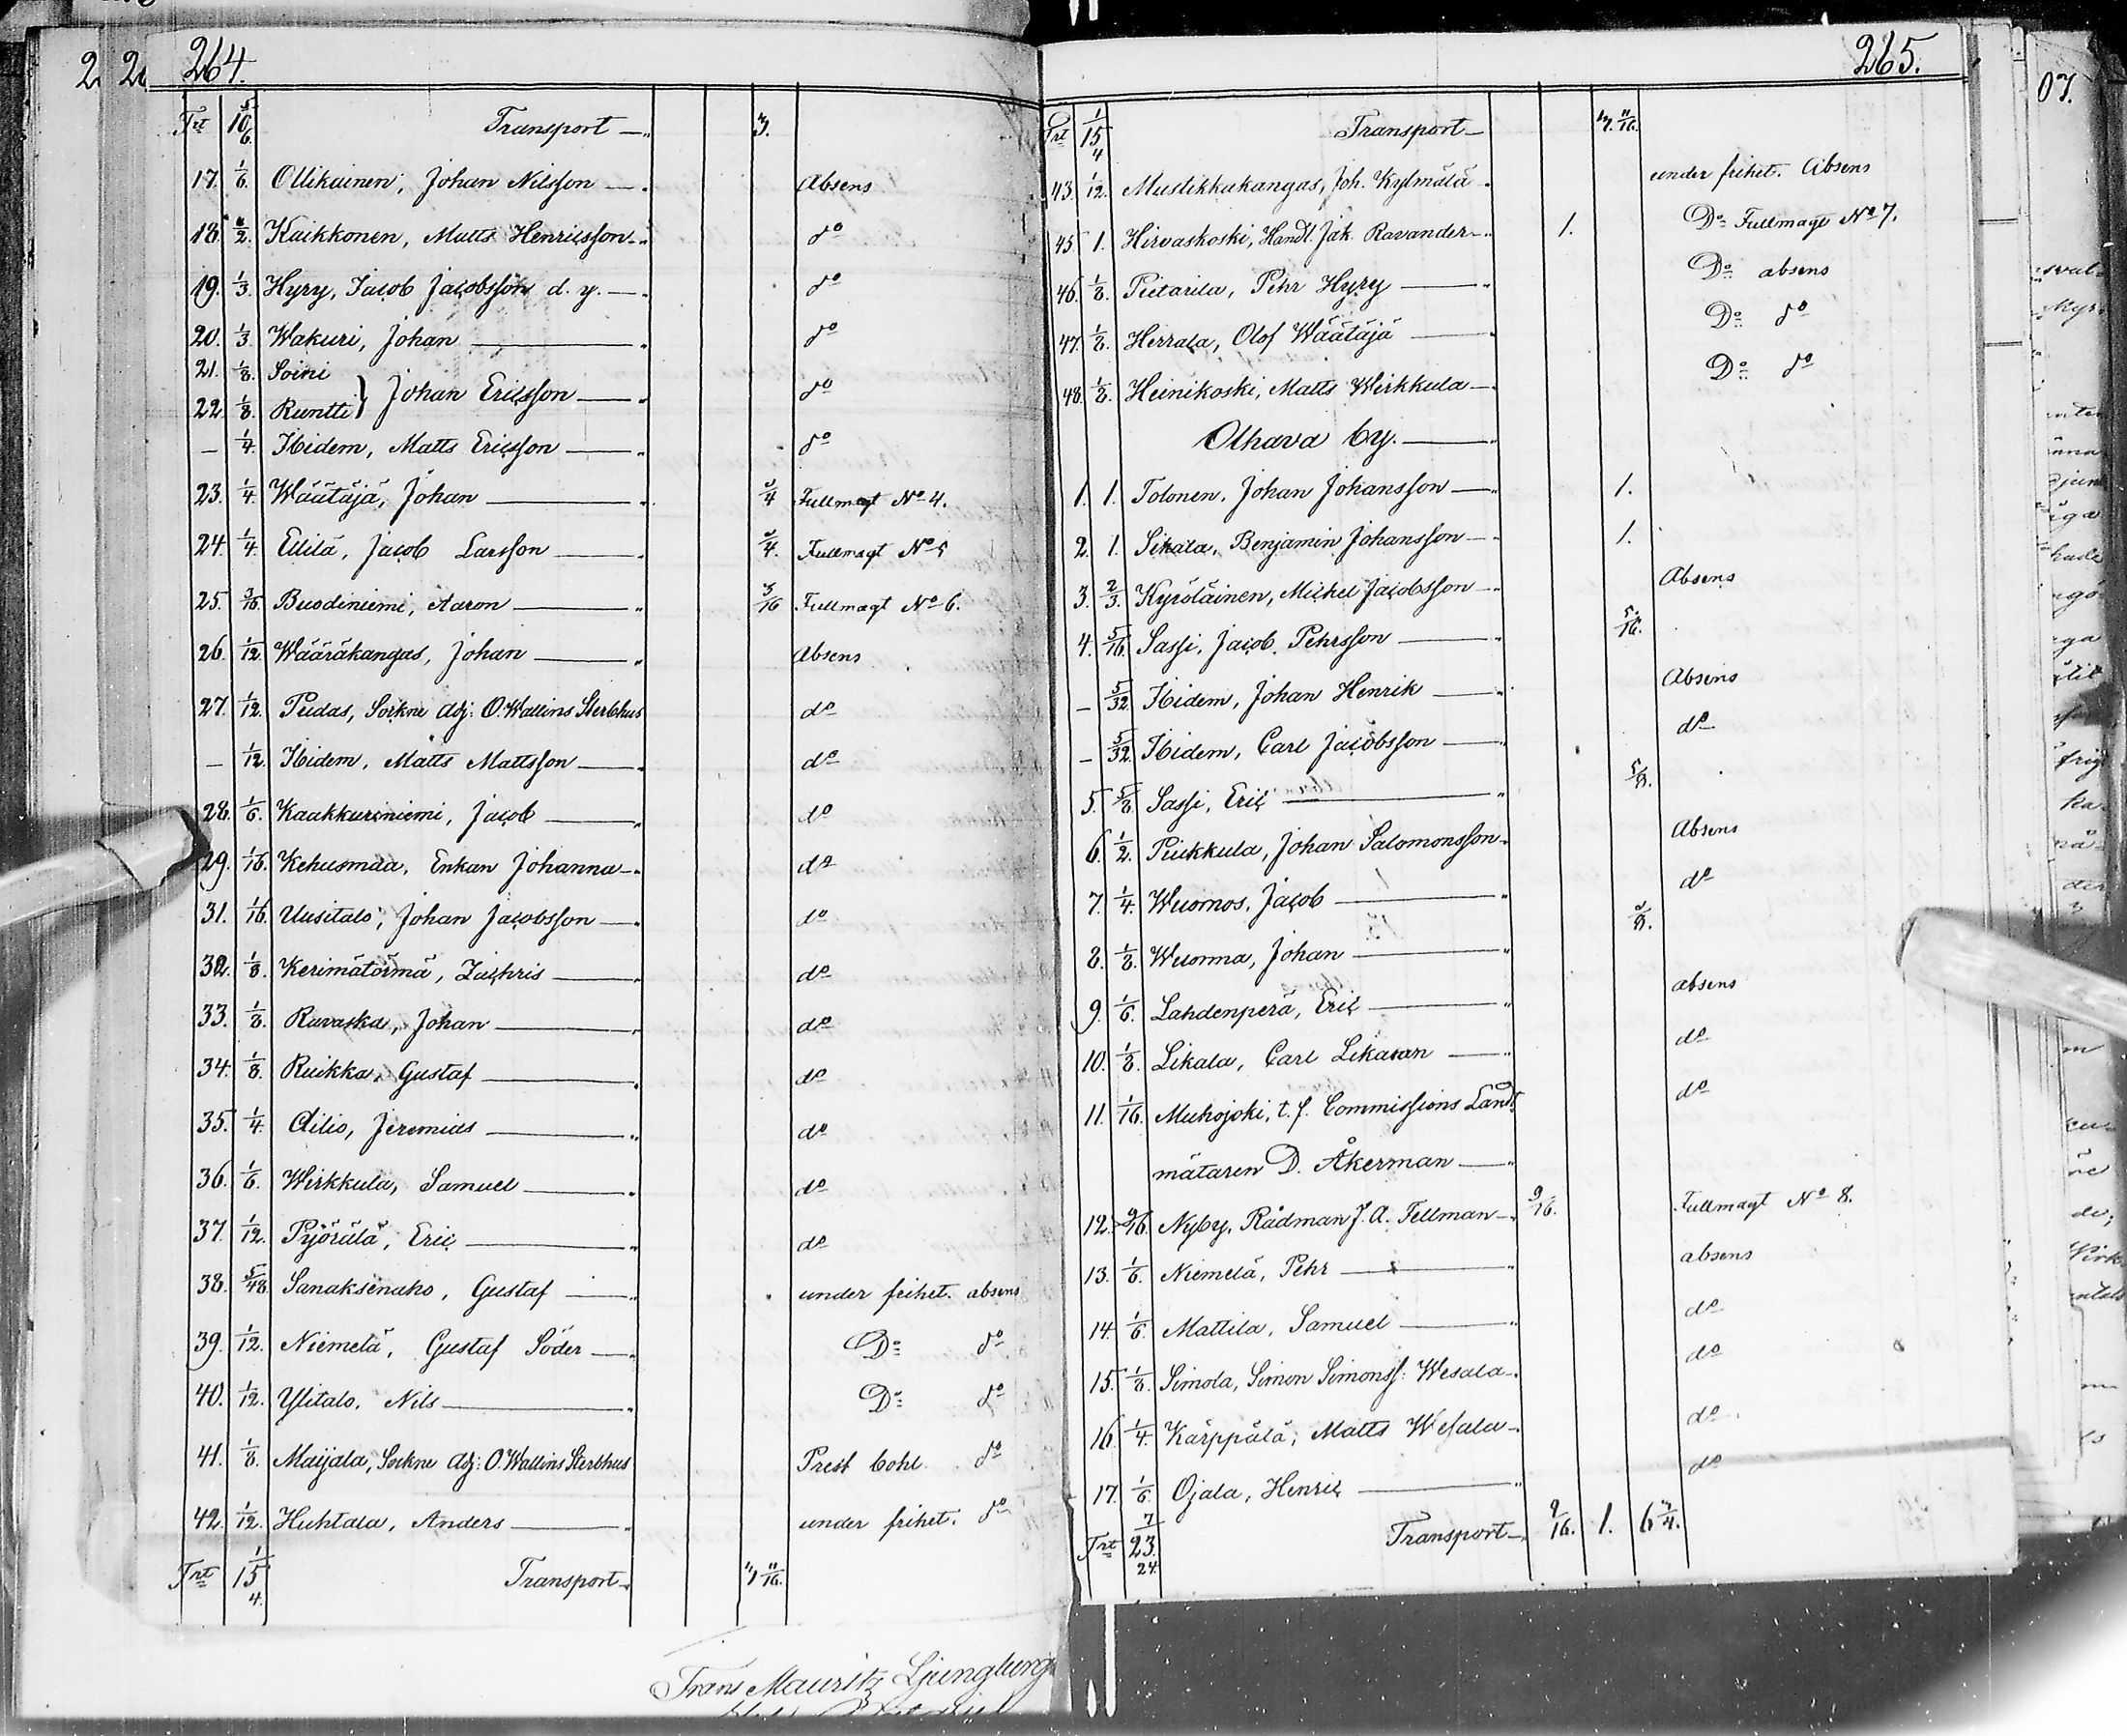 264.
Trt 10 5/6. Transport — 3.
17. 1/6. Ollikainen, Johan Nilsson — Absens
18. 1/2. Kaikkonen, Matts Henricsson — do
19. 1/3. Hyry, Jacob Jacobsson d. y. — do
20. 1/3. Wakuri, Johan — do
21. 1/8. Soini
22. 1/8. Runtti } Johan Ericsson — do
— 1/4. Ibidem, Matts Ericsson — do
23. 1/4. Väätäjä, Johan — Fullmagt No 4.
24. 1/4. Eklilä, Jacob Larsson — Fullmagt No 5
25. 3/16. Buodiniemi, Aaron — 3/16 Fullmagt No 6.
26. 1/12. Wääräkangas, Johan — Absens
27. 1/12. Pudas, Sockne Adj: O. Wallins Sterbhus do
— 1/12. Ibidem, Matts Mattsson — do
28. 1/6. Kaakkurinniemi, Jacob — do
29. 1/16. Kehusmaa, Enkan Johanna — do
31. 1/16. Uusitalo, Johan Jacobsson — do
32. 1/8. Kerimätörmä, Zachris — do
33. 1/8. Ravaska, Johan — do
34. 1/8. Ruikka, Gustaf — do
35. 1/4. Ailio, Jeremias — do
36. 1/6. Wirkkula, Samuel — do
37. 1/12. Pyörälä, Eric — do
38. 5/48. Sanaksenaho, Gustaf — under frihet. absens
39. 1/12. Niemelä, Gustaf Söder — Do do
40. 1/12. Ylitalo, Nils — Do do
41. 1/8. Maijala, Sockne Adj: O. Wallins Sterbhus Prest bohl. do
42. 1/12. Huhtala, Anders — under frihet. do
Trt 15 1/4. Transport — 11/16.
Frans Mauritz Ljungberg
265.
Trt 15 1/4 Transport — 11/16.
43. 1/12. Mustikkakangas, Joh. Kylmälä — under frihet. Absens
45. 1. Hirvaskoski, Handl. Jak. Ravander — 1. Do Fullmagt No 7.
46. 1/8. Pietarila, Pehr Hyry — Do absens
47. 1/8. Herrala, Olof Wäätäjä — Do do
48. 1/8. Heinikoski, Matts Wirkkula — Do do
Olhava by. —
1. 1. Tolonen, Johan Johansson — 1.
2. 1. Sikala, Benjamin Johansson — 1.
3. 2/3. Kyröläinen, Michel Jacobsson — Absens
4. 5/16. Sassi, Jacob Pehrsson — 5/16.
— 5/32. Ibidem, Johan Henrik — Absens
— 5/32. Ibidem, Carl Jacobsson — do
5. 5/8. Sassi, Eric — 5/8.
6. 1/2. Puikkula, Johan Salomonsson — Absens
7. 1/4. Wuornos, Jacob — do
8. 1/8. Wuonna, Johan —
9. 1/6. Lahdenperä, Eric — absens
10. 1/8. Likala, Carl Likanan — do
11. 1/16. Muhojoki, t. f. Commissions Landt
mätaren D. Åkerman — do
12. 9/16. Nyby, Rådman J. A. Fellman — 9/16. Fullmagt No 8.
13. 1/6. Niemelä, Pehr — absens
14. 1/6. Mattila, Samuel — do
15. 1/8. Simola, Simon Simonss: Wesala — do
16. 1/4. Kärppälä, Matts Wesala — do
17. 1/6. Ojala, Henric — do
Trt 23 7/24. Transport — 9/16. 1. 6
07.